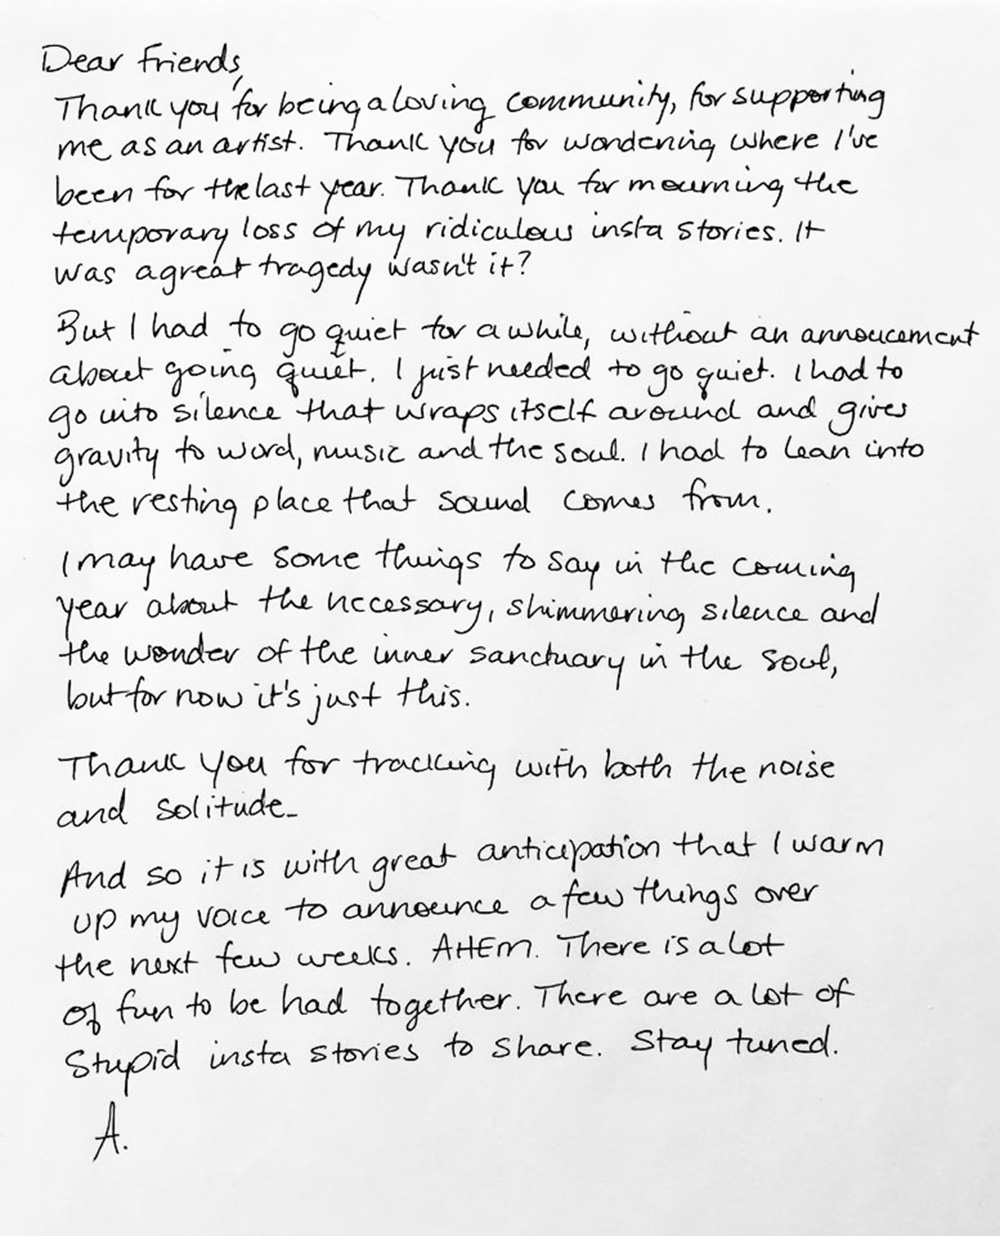 Dear Friends,
Thank you for being a loving community, for supporting
me as an artist. Thank you for wondering where I've
been for the last year. Thank you for mourning the
temporary loss of my ridiculous insta stories. It
was a great tragedy wasn't it?
But I had to go quiet for a while, without an annoucement
about going quiet. I just needed to go quiet. I had to
go into silence that wraps itself around and gives
gravity to word, music and the soul. I had to lean into
the resting place that sound comes from.
I may have some things to say in the coming
year about the necessary, shimmering silence and
the wonder of the inner sanctuary in the soul,
but for now it's just this.
Thank you for tracking with both the noise
and solitude.
And so it is with great anticipation that I warm
up my voice to announce a few things over
the next few weeks. AHEM. There is a lot
of fun to be had together. There are a lot of
Stupid insta stories to share. Stay tuned.
A.